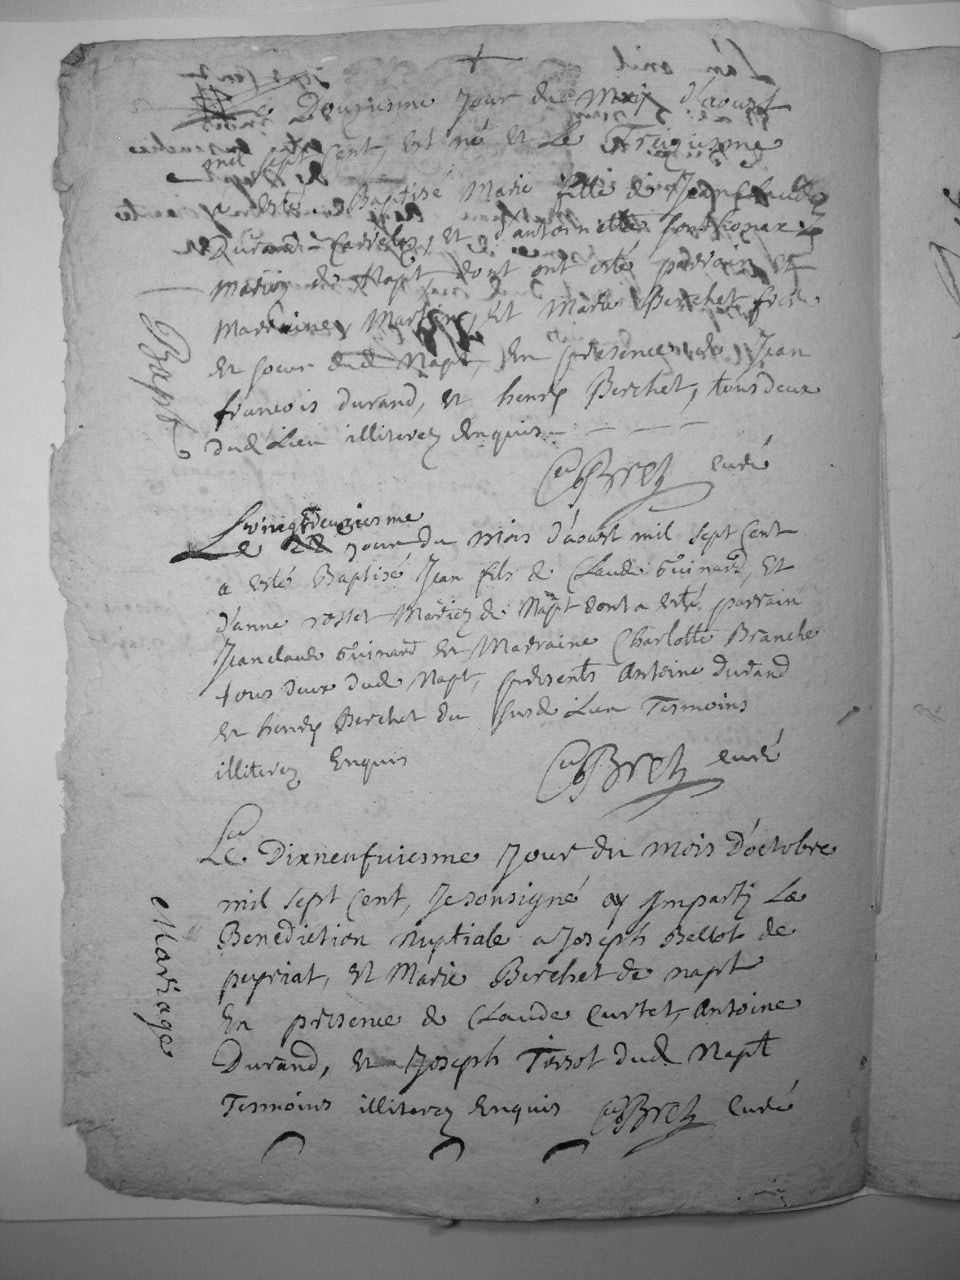 Le Douziesme Jour du Mois d'aoust
mil sept Cent, est né et Le Treiziesme
a esté Baptisé Marie fille de Jean Claude
Durand et d'antoinette
Mariez de Napt dont ont esté parrain et
Marraine, Martin, Et Marie Berchet frere
et soeur dud Napt, En presence de Jean
francois durand, et henry Berchet, tous deux
dud Lieu illiterez Enquis
CuBret Curé
Bapt
Le vingtdeuziesme
Le jour du mois d'aoust mil sept Cent
a esté Baptisé Jean fils de Claude Guinard, Et
d'anne rosset Mariez de Napt dont a esté parrain
Jeanclaude Guinard Et Marraine Charlotte Branche
tous deux dud Napt, presents Antoine durand
et henry Berchet du susd Lieu Tesmoins
illiterez Enquis
CuBret Curé
Le Dixneufviesme Jour du mois D'octobre
mil sept Cent, Je sousigné ay Imparty La
Benediction Nuptiale a Joseph Bellot de
peyriat, et Marie Berchet de napt
En presence de Claude Curtet, Antoine
Durand, et Joseph Tissot dud Napt
Tesmoins illiterez Enquis CuBret Curé
Mariage